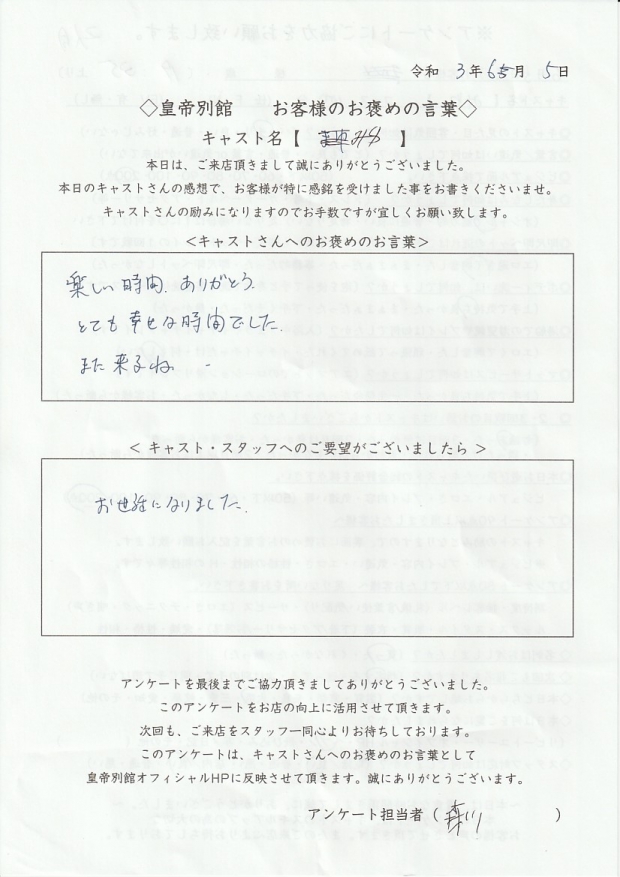 令和 3年 6月 5日
◇皇帝別館 お客様のお褒めの言葉◇
キャスト名【 】
本日は、ご来店頂きまして誠にありがとうございました。
本日のキャストさんの感想で、お客様が特に感銘を受けました事をお書きくださいませ。
キャストさんの励みになりますのでお手数ですが宜しくお願い致します。
<キャストさんへのお褒めのお言葉>
楽しい時間、ありがとう。
とても幸せな時間でした。
また来るね。
< キャスト・スタッフへのご要望がございましたら >
お世話になりました。
アンケートを最後までご協力頂きましてありがとうございました。
このアンケートをお店の向上に活用させて頂きます。
次回も、ご来店をスタッフ一同心よりお待ちしております。
このアンケートは、キャストさんへのお褒めのお言葉として
皇帝別館オフィシャルHPに反映させて頂きます。誠にありがとうございます。
アンケート担当者（ 森川 ）